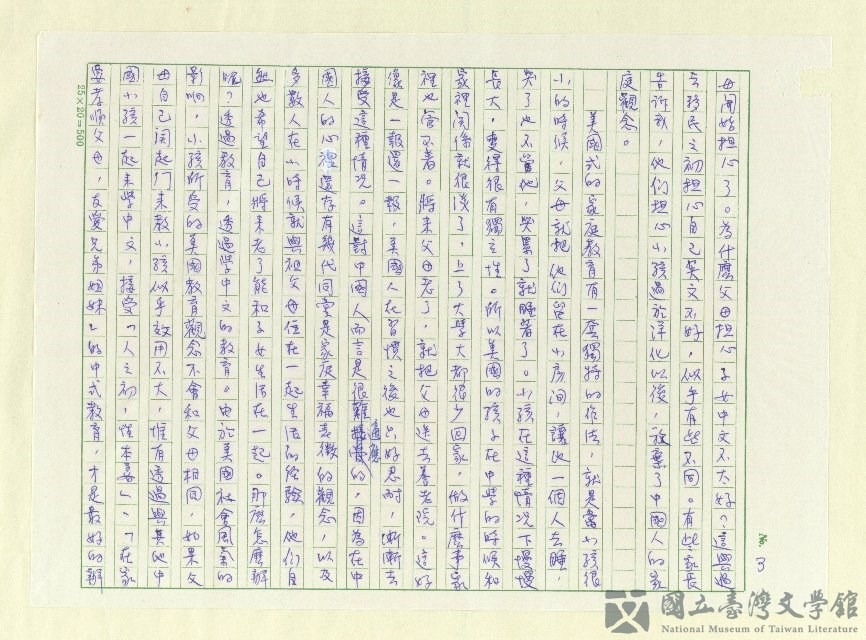 № 3
母開始擔心了。為什麼父母擔心子女中文不太好?這與過
去移民之初擔心自己英文不好,似乎有些不同。有些家長
告訴我,他們擔心小孩過於洋化以後,放棄了中國人的家
庭觀念。
美國式的家庭教育有一套獨特的作法,就是當小孩很
小的時候,父母就把他們留在小房間,讓他一個人去睡,
哭了也不管他,哭累了就睡著了。小孩在這種情況下慢慢
長大,變得很有獨立性。所以美國的孩子在中學的時候和
家裡關係就很淡了,上了大學大都很少回家,做什麼事家
裡也管不著。將來父母老了,就把父母送去養老院。這好
像是一報還一報,美國人在習慣之後也只好忍耐,漸漸去
接受這種情況。這對中國人而言是很難適應的,因為在中
國人的心裡還存有幾代同堂是家庭幸福表徵的觀念,以及
多數人在小時候就與祖父母住在一起生活的經驗,他們自
然也希望自己將來老了能和子女生活在一起。那麼怎麼辦
呢?透過教育,透過學中文的教育。由於美國社會風氣的
影响,小孩所受的美國教育觀念不會和父母相同,如果父
母自己關起門來教小孩似乎效用不大,惟有透過與其他中
國小孩一起來學中文,接受「人之初,性本善」、「在家
要孝順父母,友愛兄弟姐妹」的中式教育,才是最好的辦
25×20=500
國立臺灣文學館
National Museum of Taiwan Literature